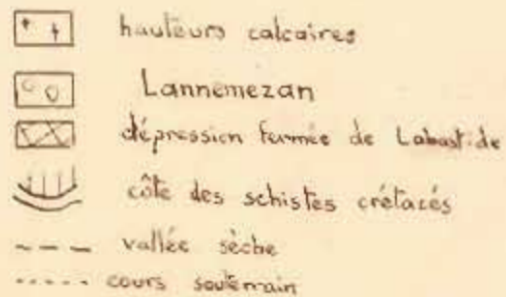 hauteurs calcaires
Lannemezan
dépression fermée de Labastide
côte des schistes crétacés
vallée sèche
cours souterrain